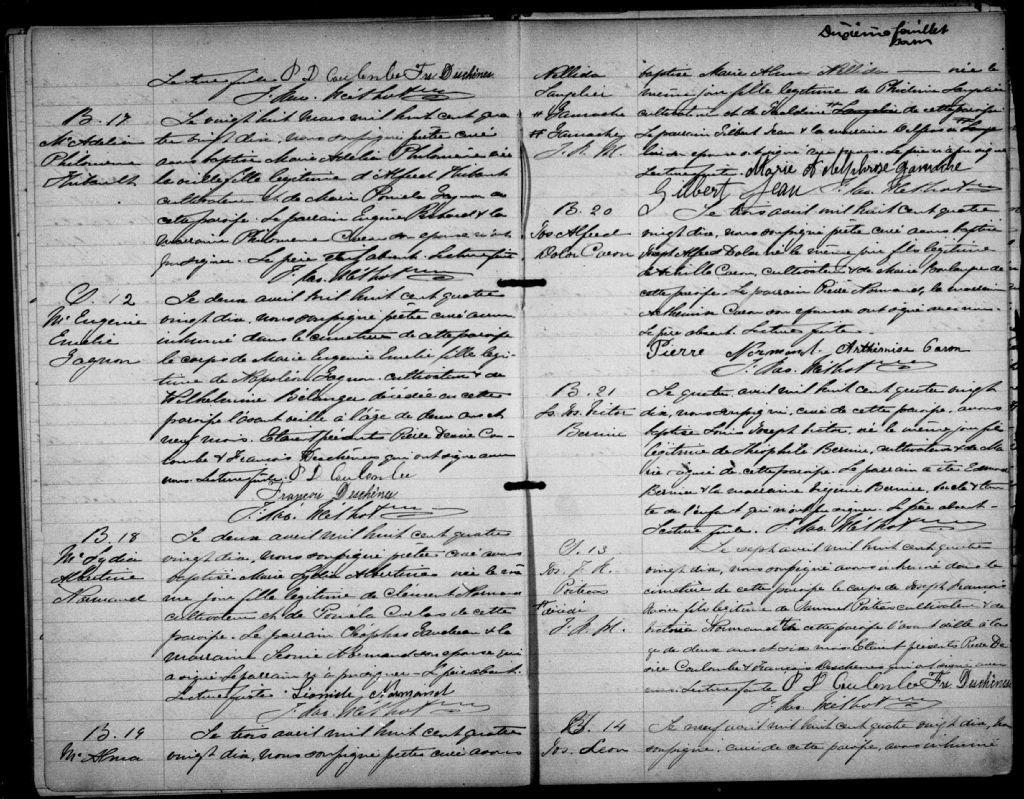 Dixième feuillet
Lecture faite. P D Coulombe Frs Deschênes
J. Nas. Méthot ptre
B. 17
Me Adelia
Philomène
Thibault
Le vingt huit mars mil huit cent qua
tre vingt dix, nous soussigné prêtre curé
avons baptisé Marie Adelia Philomène née
la veille fille légitime d'Alfred Thibault
cultivateur et de Marie Pamela Gagnon de
cette paroisse. Le parrain Eugène & la
marraine Philomène son épouse n'ont
pu signer. Le père absent. Lecture faite
J. Nas. Méthot ptre
S. 12
Me Eugenie
Emelie
Gagnon
Le deux avril mil huit cent quatre
vingt dix, nous soussigné prêtre curé avons
inhumé dans le cimetière de cette paroisse
le corps de Marie Eugenie Emelie fille légi
time de Napoléon Gagnon cultivateur & de
Wilhelmine Bélanger décédée en cette
paroisse l'avant veille à l'âge de deux ans et
neuf mois. Etaient présents Pierre Désiré Cou
lombe & François Deschênes qui ont signé avec
nous. Lecture faite. P D Coulombe
François Deschênes
J. Nas. Méthot ptre
B. 18
Me Lydia
Albertine
Normand
Le deux avril mil huit cent quatre
vingt dix, nous soussigné prêtre curé avons
baptisé Marie Lydia Albertine née le mê
me jour fille légitime de Clément Normand
cultivateur et de Paméla de cette
paroisse. Le parrain Cléophas Gaudreau & la
marraine Leonie Normand son épouse qui
a signé le parrain n'a pu signer. Le père absent.
Lecture faite. Normand
J. Nas. Méthot ptre
B. 19
Me Alma
Le trois avril mil huit cent quatre
vingt dix, nous soussigné prêtre curé avons
Nellida
Langelier
# Gamache
## Gamache
J. N. M.
baptisé Marie Alma Nellida née le
même jour fille légitime de Langelier
cultivateur et de # Langelier de cette paroisse
Le parrain Gilbert Jean & la marraine ## Lange
lier son épouse ont signé avec nous. Le père a signé
Lecture faite. Marie A Delphirose Gamache
Gilbert Jean J. Nas. Méthot ptre
B. 20
Jos Alfred
Dolor Caron
Le trois avril mil huit cent quatre
vingt dix, nous soussigné prêtre curé avons baptisé
Joseph Alfred Dolor né le même jour fils légitime
de Achille Caron, cultivateur & de Marie Boulanger de
cette paroisse. Le parrain Pierre Normand, la marraine
Arthemise Caron son épouse ont signé avec nous.
Le père absent. Lecture faite.
Pierre Normand Arthémise Caron
J. Nas. Méthot ptre
B. 21
Ls. Jos. Hector
Bernier
Le quatre avril mil huit cent quatre vingt
dix, nous soussigné, curé de cette paroisse, avons
baptisé Louis Joseph Hector, né le même jour fils
légitime de Théophile Bernier, cultivateur & de Ma
rie de cette paroisse. Le parrain a été Edmond
Bernier & la marraine Eugénie Bernier, oncle & tan
te de l'enfant qui n'ont pu signer. Le père absent.
Lecture faite. J. Nas. Méthot ptre
S. 13
Jos. F. X.
Poitras
# décédé
J. N. M.
Le sept avril mil huit cent quatre
vingt dix, nous soussigné avons inhumé dans le
cimetière de cette paroisse le corps de Joseph François
Xavier fils légitime de Poitras cultivateur & de
Normand # en cette paroisse l'avant veille à l'â
ge de deux ans et dix mois. Etaient présents Pierre Dé
siré Coulombe & François Deschênes qui ont signé avec
nous. Lecture faite. P D Coulombe Frs Deschênes
J. Nas. Méthot ptre
S. 14
Jos. Léon
Le neuf avril mil huit cent quatre vingt dix, nous
soussigné, curé de cette paroisse, avons inhumé